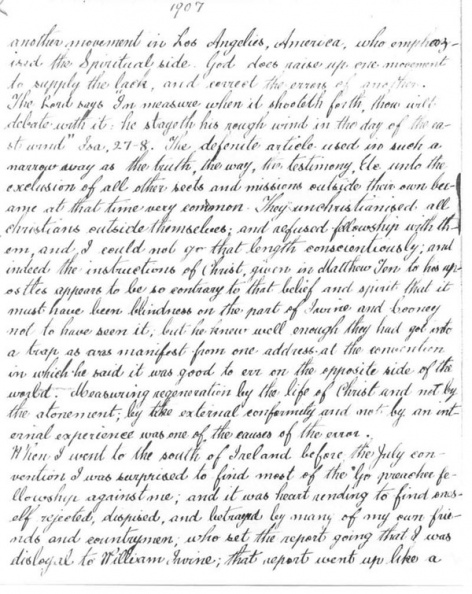 1907
another movement in Los Angelies, America, who emphers-
ised the Spiritual side. God does raise up one movement
to supply the lack, and correct the errors of another.
The Lord says "In measure when it shooteth forth, thou wilt
debate with it: he stayeth his rough wind in the day of the ea-
st wind" Isa, 27-8. The defenite article used in such a
narrow way as the truth, the way, the testimony, Etc unto the
exclusion of all other seets and missions outside their own bec-
ame at that time very common. They unchristianised all
christians outside themselves; and refused fellowship with th-
em, and, I could not go that length conscientiously; and
indeed the instructions of Christ, given in Matthew Ten to his ap-
ostles appears to be so contrary to that belief and spirit that it
must have been blindness on the part of Irvine and Cooney
not to have seen it; but he knew well enough they had got into
a trap as was manifest from one address at the convention
in which he said it was good to err on the opposite side of the
world. Measuring regeneration by the life of Christ and not by
the atonement; by the external conformity and not by an int-
ernal experience was one of the causes of the error.
When I went to the south of Ireland before the July con-
vention I was surprised to find most of the Go preacher fe-
llowship against me; and it was heart rending to find ones-
elf rejected, dispised, and betrayed by many of my own frie-
nds and countrymen; who set the report going that I was
disloyal to William Irvine; that report went up like a